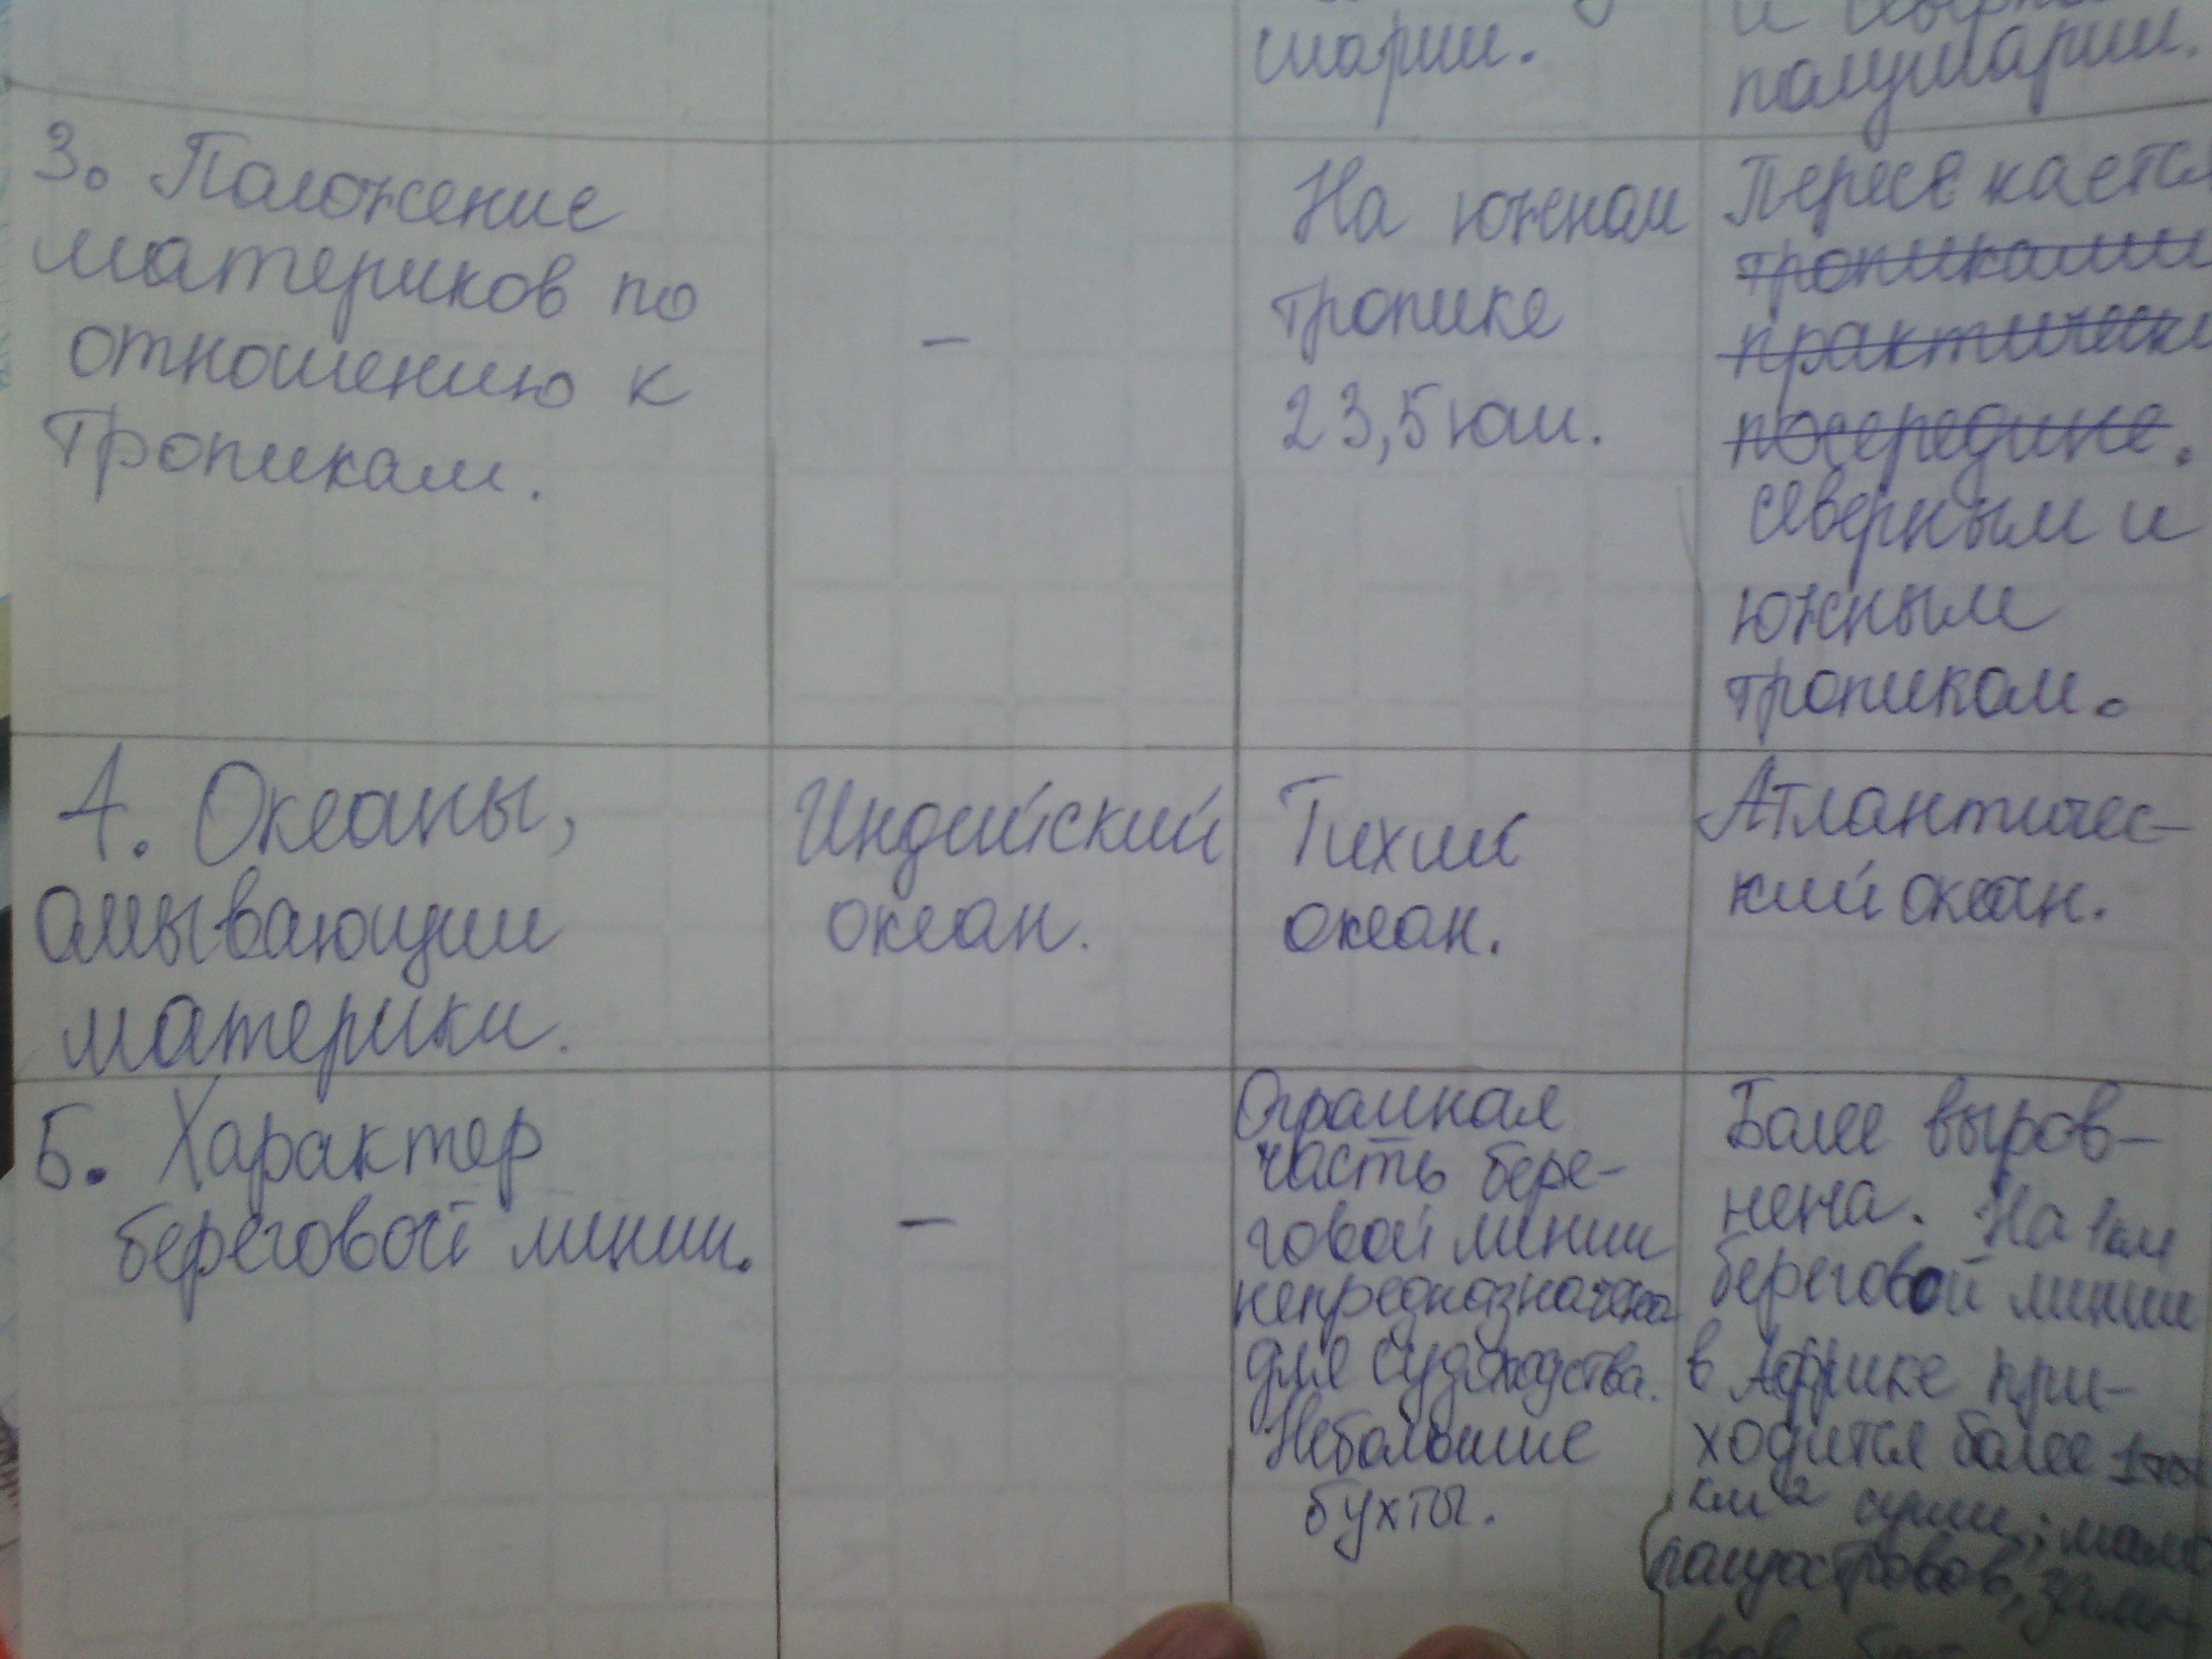 шарии.
полушарии.
3. Положение
материков по
отношению к
Тропикам.
–
На южном
тропике
23,5 юш.
Пересекается
тропиками
практически
посередине.
северным и
южным
тропиком.
4. Океаны,
омывающии
материки.
Индийский
океан.
Тихий
океан.
Атлантичес-
кий океан.
5. Характер
береговой линии.
–
Огромная
часть бере-
говой линии
непредназначена
для судоходства.
Небольшие
бухты.
Более выров-
нена. На 1 км
береговой линии
в Африке при-
ходится более
км2 суши; мало
полуостровов, зали-